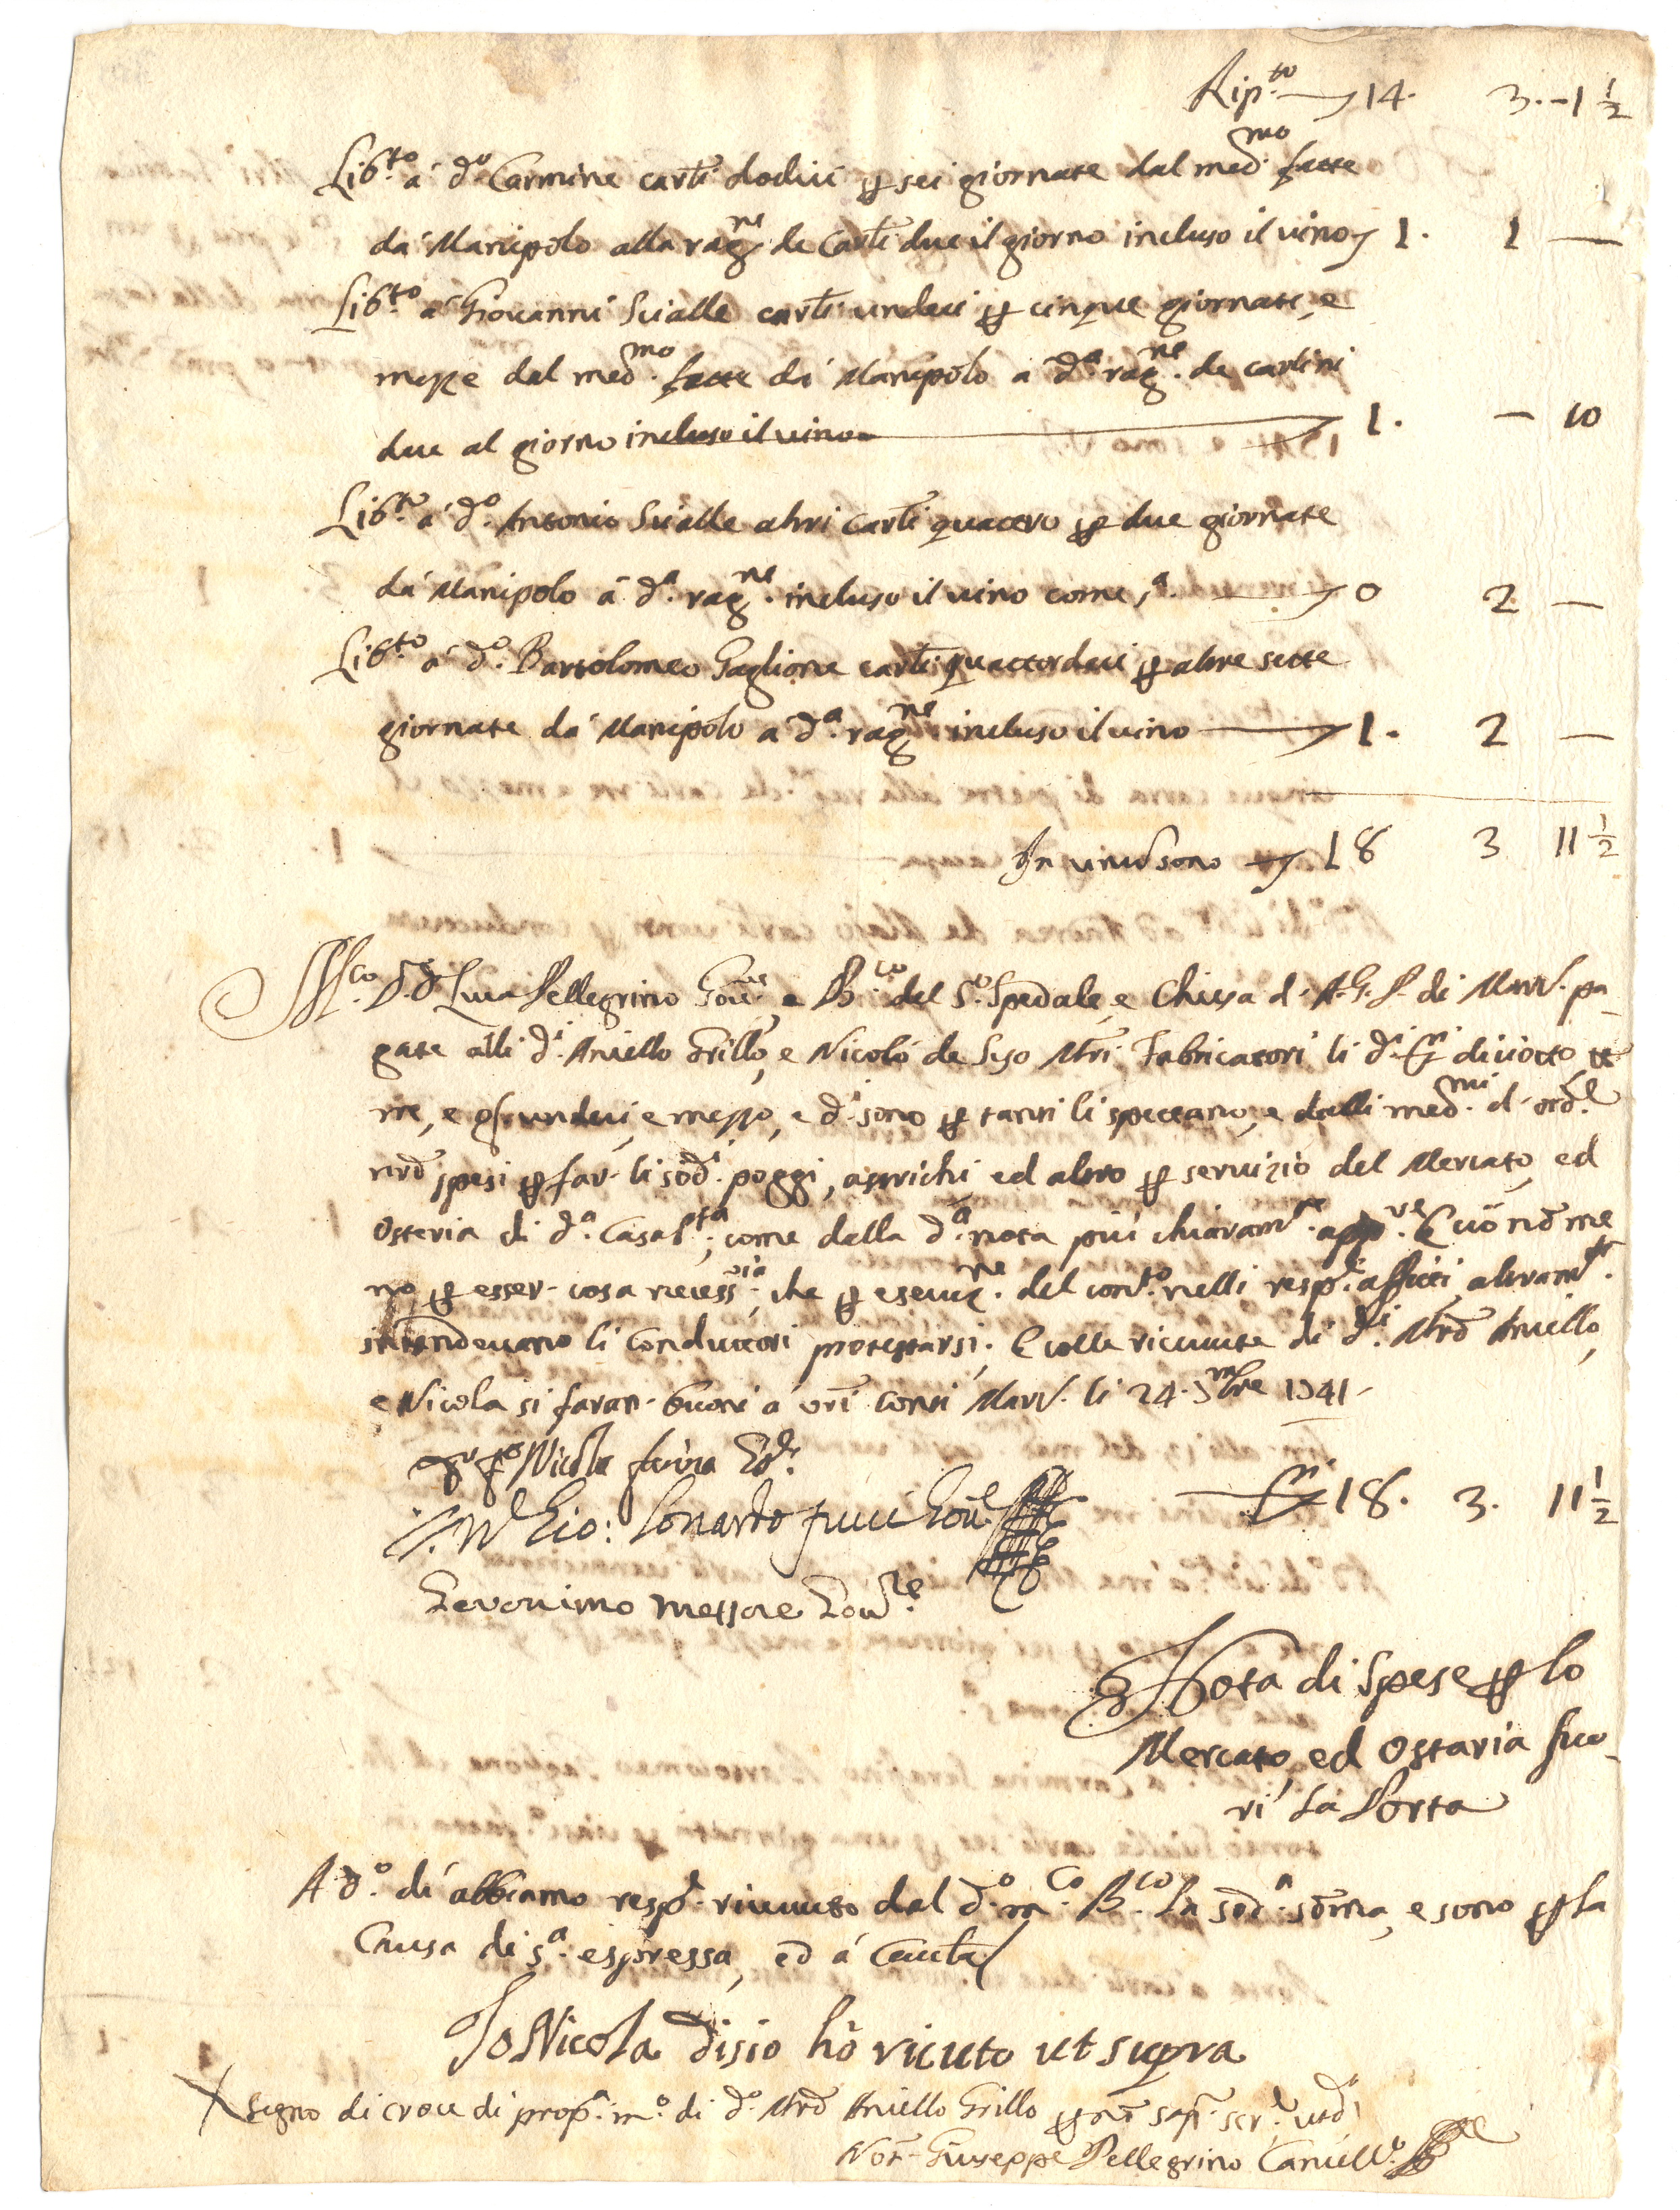 Rip.to 14. 3.-1 1/2
Lib.to á d.o Carmine carl.i dodici p sei giornate dal med.mo fatte
da' Manipolo alla rag.ne de Carl.i due il giorno incluso il vino 1. 1 —
Lib.to a' Giovanni Scialle carl.i undeci p cinque giornate, e
mezze dal med.mo fatte da' Manipolo a d.a rag.ne de carlini
due al giorno incluso il vino 1. — 10
Lib.to a' d.o Antonio Scialle altri carl.i quattro p due giornate
da' Manipolo á d.a rag.ne incluso il vino come s.a 0 2 —
Lib.to a' d.o Bartolomeo Gaglione carl.i quattordeci p altre sette
giornate da' Manipolo a' d.a rag.ne incluso il vino 1. 2 —
In unum sono 18 3 11 1/2
M.co Luca Pellegrino Gov.re e B.co del S.o Spedale, e Chiesa d. A.G.P. di Madd. pa-
gate alli d.i Aniello Grillo, e Nicoló de Siso Mri Fabricatori li d.i diciotto tt
tre, e gr undeci, e mezzo, e d.i sono p tanti li spettano, e dalli med.mi d'ord.e
nrõ spesi p far li sod.i poggi, astrichi, ed altro p servizio del Mercato, ed
Osteria di d.a Casa come dalla d.a nota piú chiaram.te app.re E ció nõ me
no p esser cosa necess.ria, che p esecuz.ne del cont.o nelli resp.i affitti, altram.te
intendevano li Conduttori protestarsi. E colle ricevute di d.i Mrõ Aniello,
e Nicola si faran buoni á vri conti Madd. li 24. 9mbre 1741
Nicola
18. 3. 11 1/2
Gio: Lonardo Gov.
Geronimo Messore Gov.re
Nota di Spese p lo
Mercato, ed Ostaria fuo-
ri' la Porta
A d.o di' abbiamo resp.e ricevuto dal d.o m.co B.co la sod.a somma, e sono p la
Causa di s.a espressa, ed á Cautela
Io Nicola disio hò riceuto ut supra
Segno di croce di prop.a m.o di d.o Mrõ Aniello Grillo p nõ sap. scr.e
Not. Giuseppe Pellegrino Cancell.o